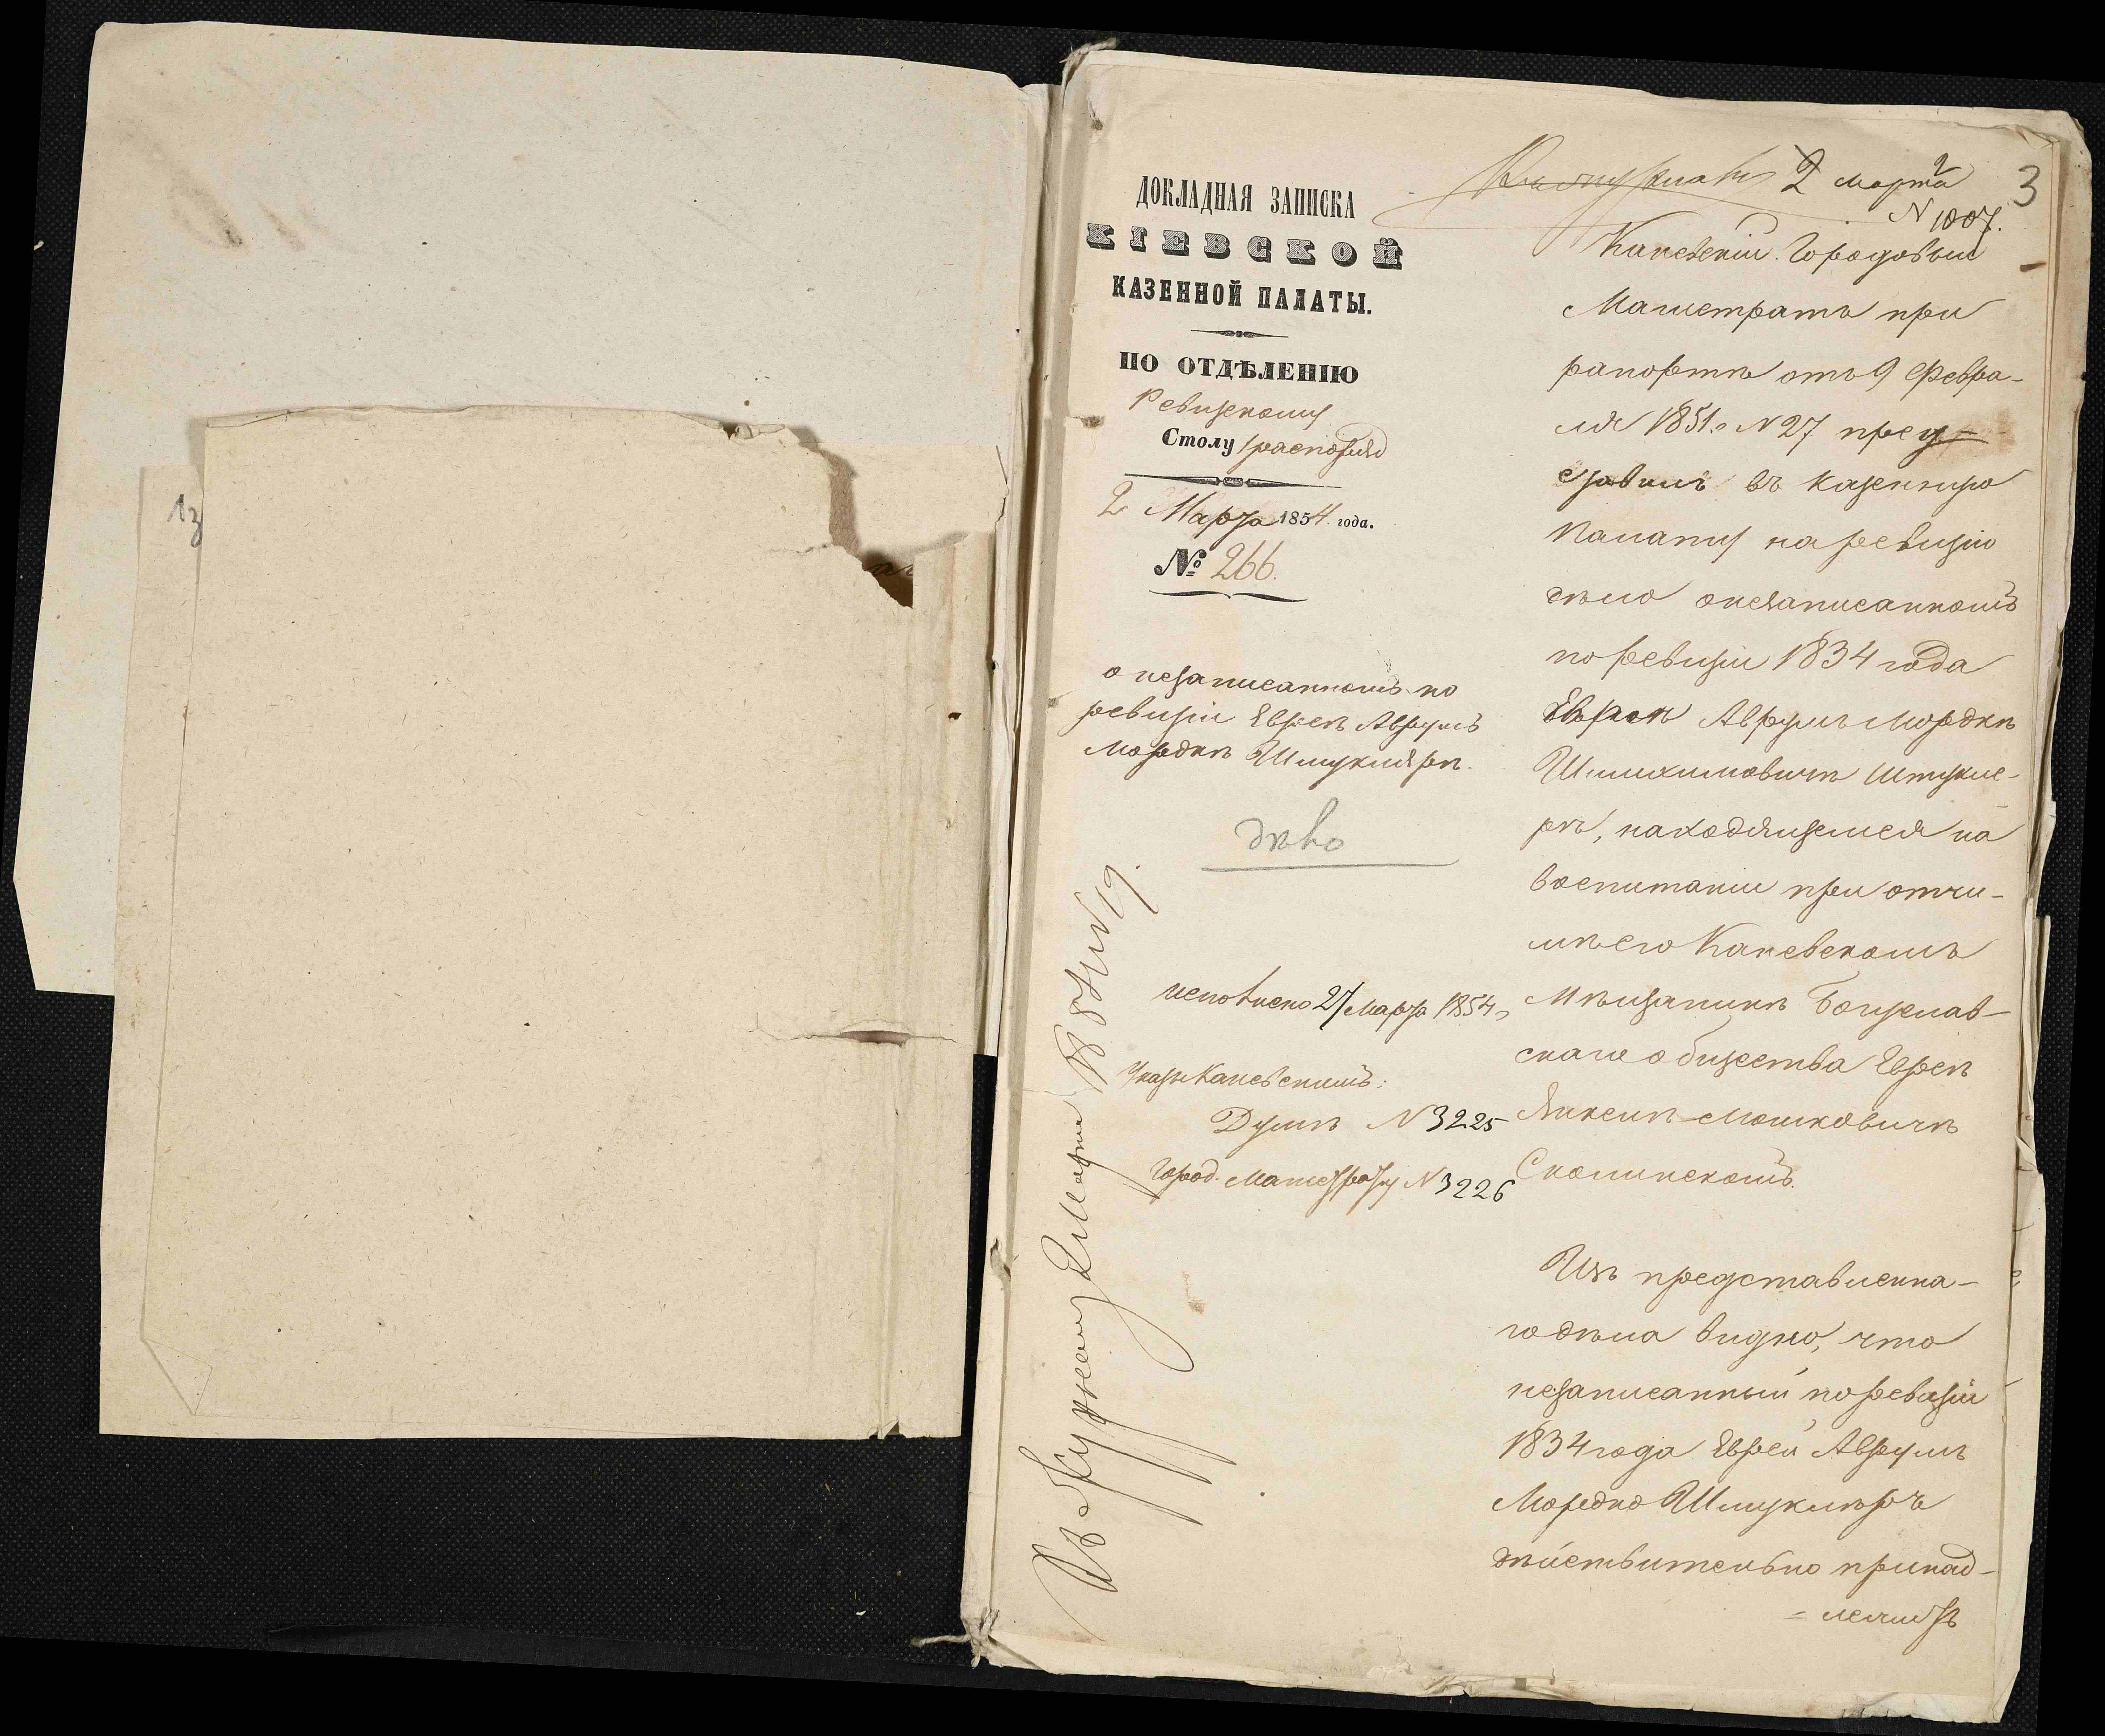 13
ДОКЛАДНАЯ ЗАПИСКА
КІЕВСКОЙ
КАЗЕННОЙ ПАЛАТЫ.
ПО ОТДѢЛЕНІЮ
Ревизскому
Столу
2 Марта 1854 года.
№ 266.
о незаписанномъ по
ревизіи Евреѣ Аврумъ
Мордкѣ Шмуклярѣ.
дѣло
исполнено 27 Марта 1854 г
Указы Каневскимъ:
Думѣ N 3225
Город. Магистрату N 3226
2 Марта
3
N 1007.
Каневскій Городовый
Магистратъ при
рапортѣ отъ 9 Февра-
ля 1851 г N 27 пред-
ставилъ въ Казенную
Палату на ревизію
дѣло о незаписанномъ
по ревизіи 1834 года
Евреѣ Аврумъ Мордкѣ
Шмукле-
рѣ, находящемся на
воспитаніи при отчи-
мѣ его Каневскомъ
Мѣщанинѣ Богуслав-
скаго общества Евреѣ
Янкелѣ Мошковичѣ
Сколинскомъ.
Изъ представленна-
го дѣла видно, что
незаписанный по ревизіи
1834 года Еврей Аврумъ
Мордко Шмуклѣръ
дѣйствительно принад-
-лежитъ